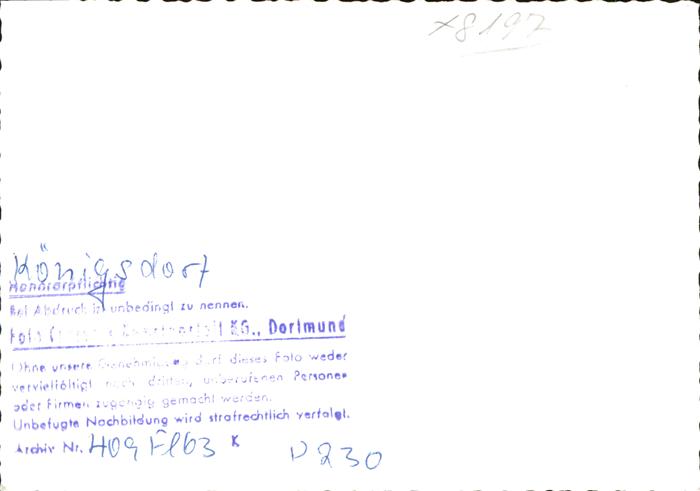 x8197
Königsdorf
Honorarpflichtig
Bei Abdruck ist unbedingt zu nennen.
Foto KG., Dortmund
Ohne unsere Genehmigung darf dieses Foto weder
vervielfältigt noch dritten, unberufenen Personen
oder Firmen zugängig gemacht werden.
Unbefugte Nachbildung wird strafrechtlich verfolgt.
Archiv Nr. 409 Fl63 K
D230